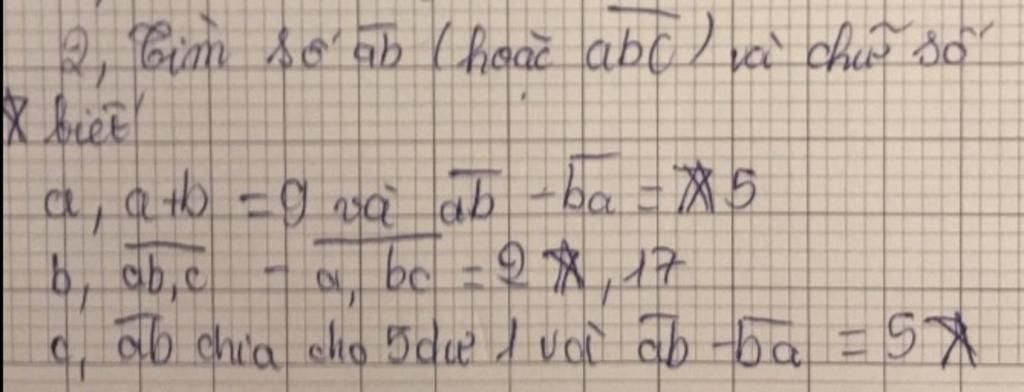 2, Tìm số a̅b̅ (hoặc a̅b̅c̅) và chữ số
* biết
a, a+b = 9 và a̅b̅ - b̅a̅ = *5
b, a̅b̅,̅c̅ - a̅,̅b̅c̅ = 2*,17
c, a̅b̅ chia cho 5 dư 1 và a̅b̅ - b̅a̅ = 5*